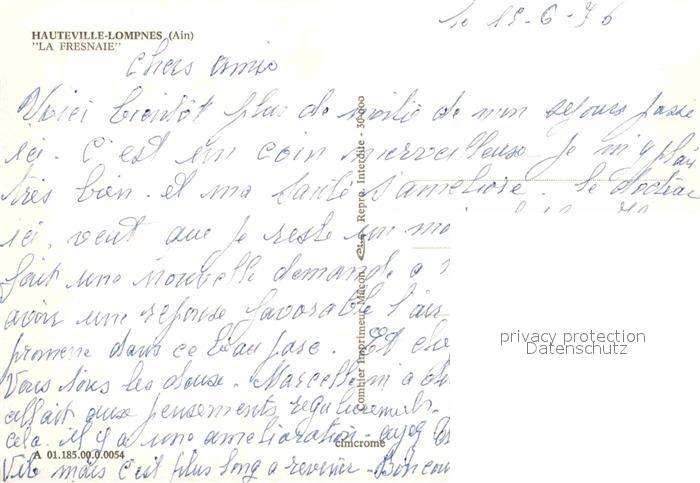 HAUTEVILLE-LOMPNES (Ain)
"LA FRESNAIE"
le 15-6-76
chers amis
Voici bientôt plus de moitié de mon sejour passe
ici. C'est un coin merveilleuse je m'y plai
très bien. et ma santé s'ameliore. le docteur
ici, veut que je reste un mo
fait une nouvelle demande a
avoir une reponse favorable l'air
promene dans ce beau parc. Et che
Vous tous les deux. Marcelle m'a di
allait aux pensements regulierements.
cela. il y a une amelioration. ayez
Vite mais c'est plus long a revenir. Bon cou
Combier Imprimeur Macon Repro. Interdite - 30-000
cimcrome
A 01.185.00.0.0054
privacy protection
Datenschutz